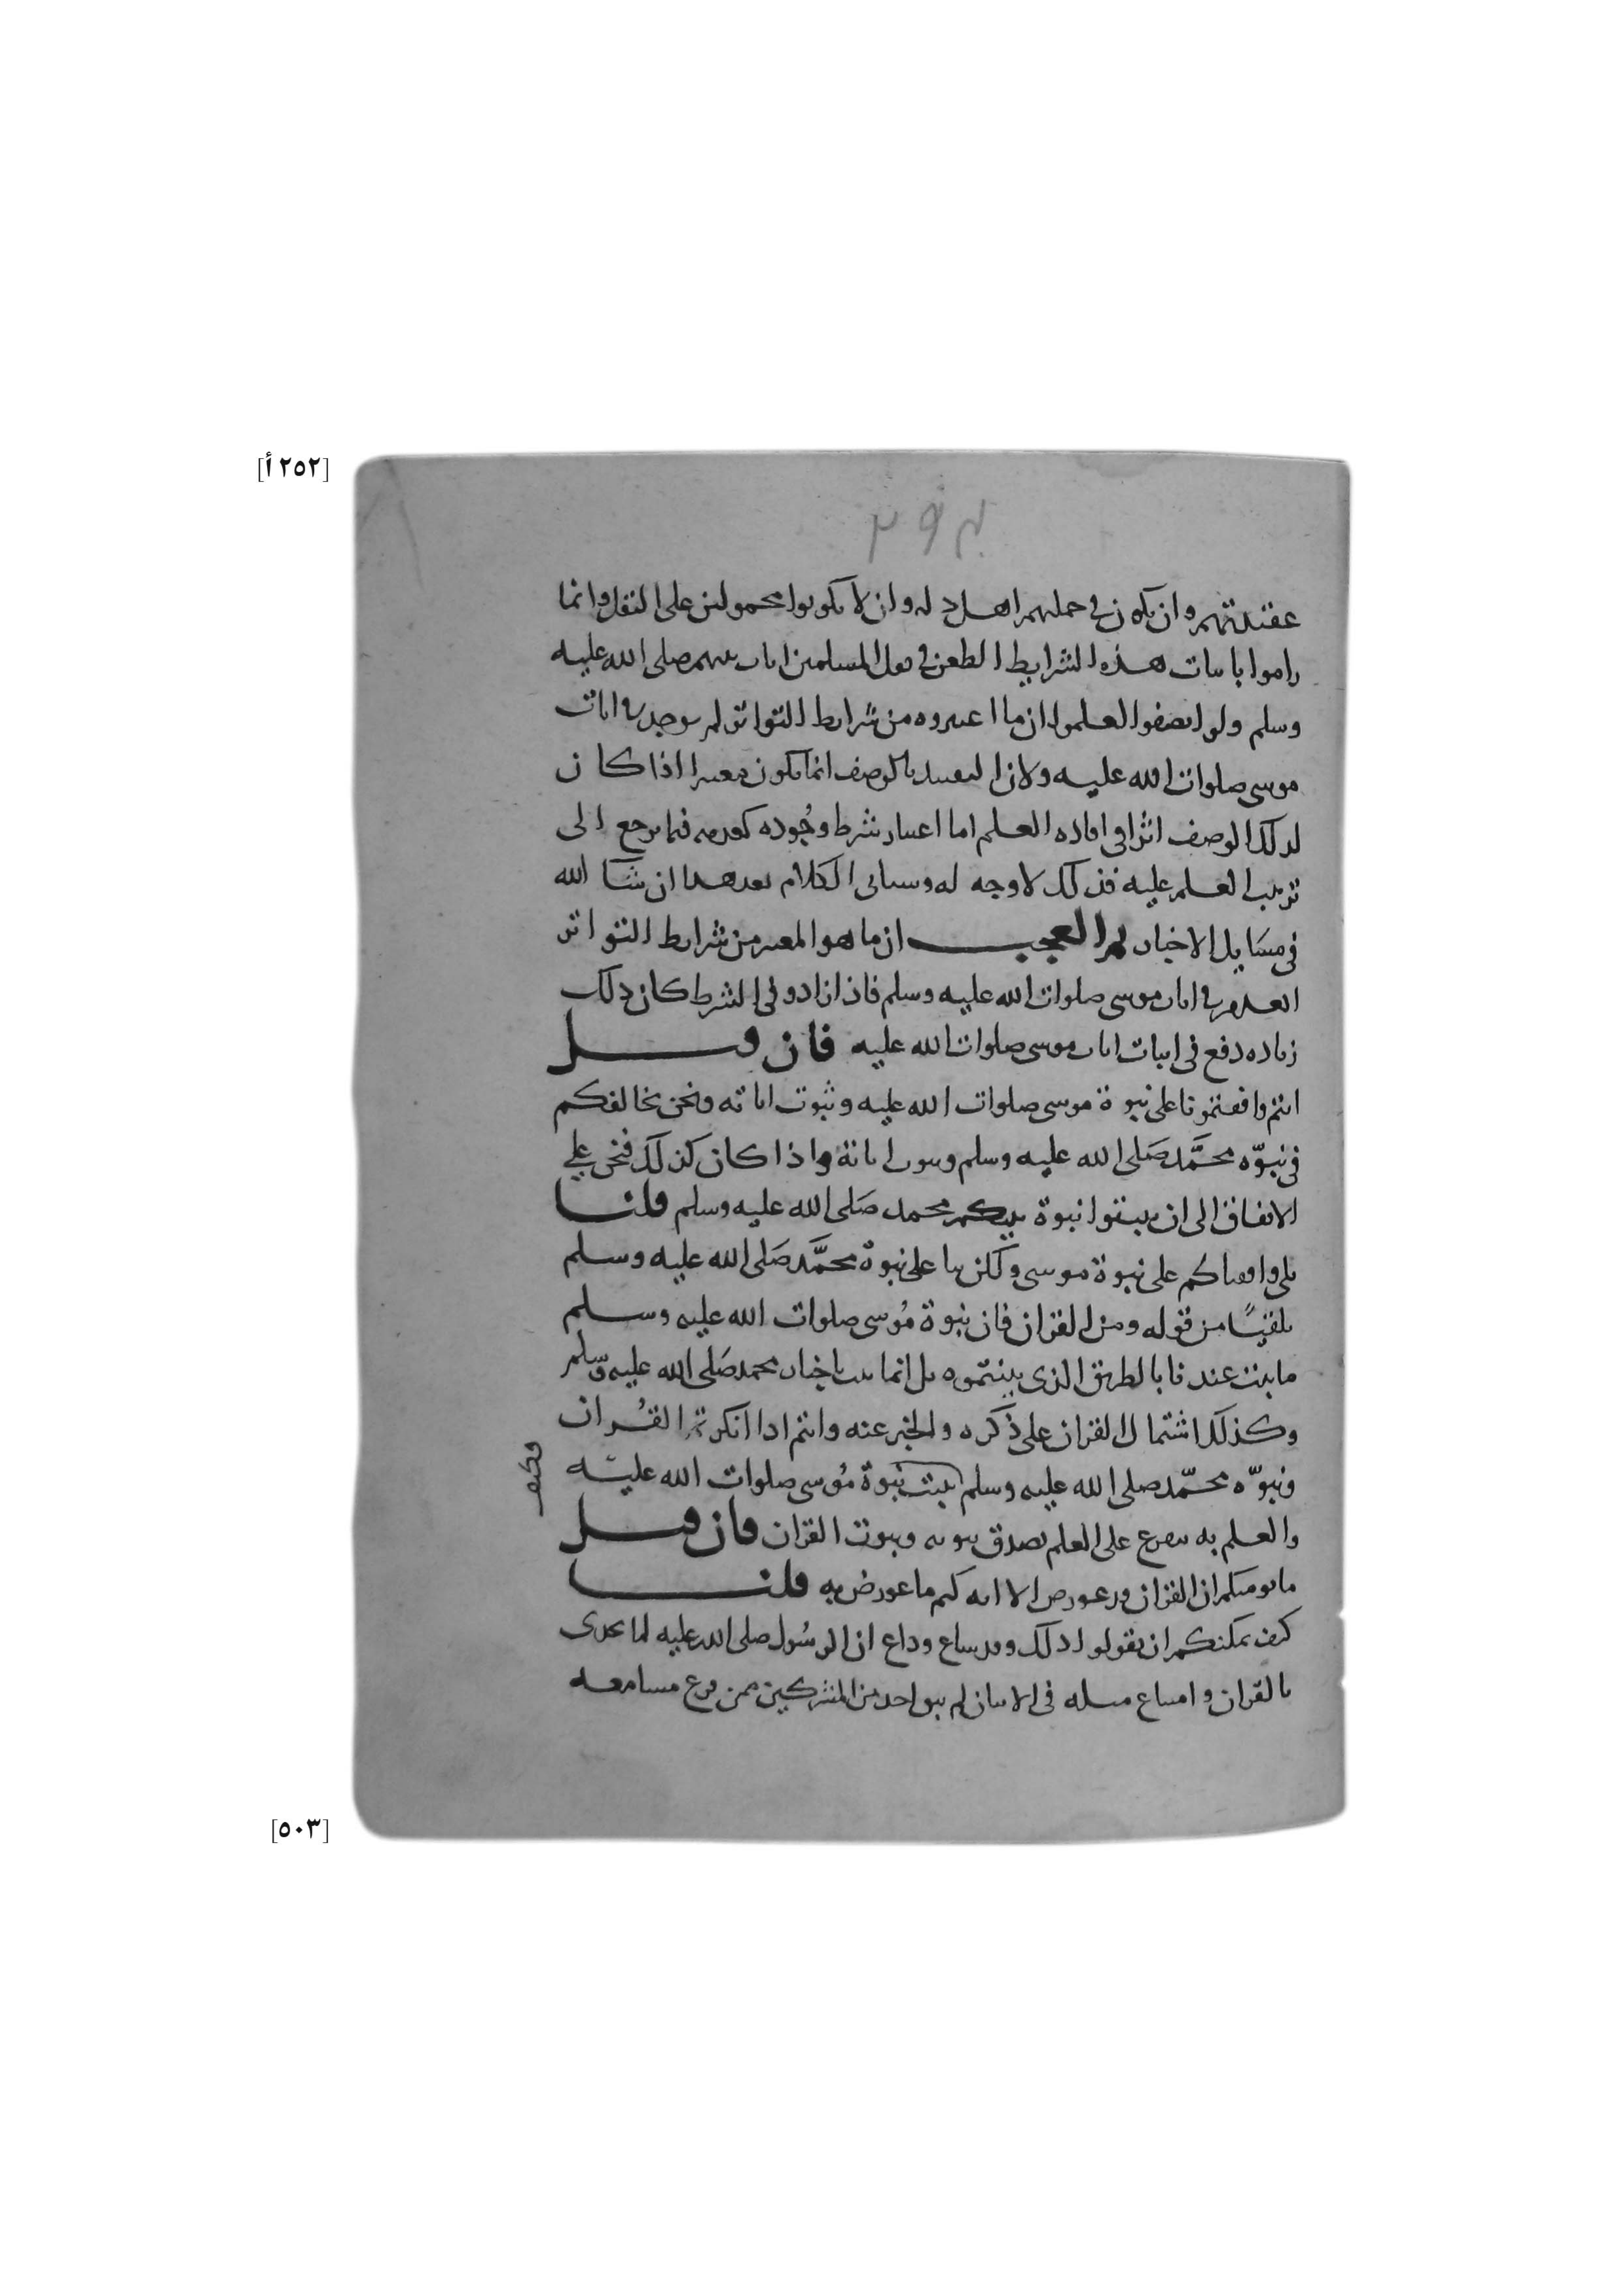 [٢٥٢ أ]
عقيدتهم وان يكون في جملتهم اهل ذله وان لا يكونوا محمولين على النقل وانما
راموا باثبات هذه الشرايط الطعن في نقل المسلمين ايات نبيهم صلى الله عليه
وسلم ولو انصفوا لعلموا ان ما اعتبروه من شرايط التواتر لم يوجد في ايات
موسى صلوات الله عليه ولان التقييد بالوصف انما يكون معتبرا اذا كان
لذلك الوصف اثرا في افاده العلم اما اعتبار شرط وجُوده كعدمه فيما يرجع الى
ترتيب العلم عليه فذلك لا وجه له وسياتي الكلام بعد هذا ان شا الله
في مسَايل الاخبار ثم العجب ان ما هو المعتبر من شرايط التواتر
انعدم في ايات موسى صلوات الله عليه وسلم فاذا زادوا في الشرط كان ذلك
زياده دفع في اثبات ايات موسى صلوات الله عليه فان قيل
انتم وافقتمونا على نبوة موسى صلوات الله عليه وثبوت اياته ونحن نخالفكم
في نبوّه محمَّد صَلى الله عليه وسلم وثبوت اياته واذا كان كذلك فنحن على
الاتفاق الى ان يثبتوا نبوة نبيكم محمد صَلى الله عليه وسلم قلنا
بلى وافقناكم على نبوة موسى ولكن بنا على نبوة محمَّد صَلى الله عليه وسلم
تلقينًا من قوله ومن القران فان نبوة مُوسى صلوات الله عليه وسلم
ما ثبت عندنا بالطريق الذي بينتموه بل انما ثبت باخبار محمد صَلى الله عليه وسلم
وكذلك اشتمال القران على ذكره والخبر عنه وانتم اذا انكرتم القُران
ونبوّه محمّد صلى الله عليه وسلم يثبت نبوة مُوسى صلوات الله عليه
فكيف
والعلم به متفرع على العلم بصدق نبوته وثبوت القران فان قيل
ما يومنكم ان القران قد عورض الا انه كتم ما عورض به قلنا
كيف يمكنكم ان تقولوا ذلك وقد شاع وذاع ان الرسُول صلى الله عليه لما تحدى
بالقران وامتناع مثله في الاتيان لم يبق احد من المشركين ممن قرع مسامعه
[٥٠٣]